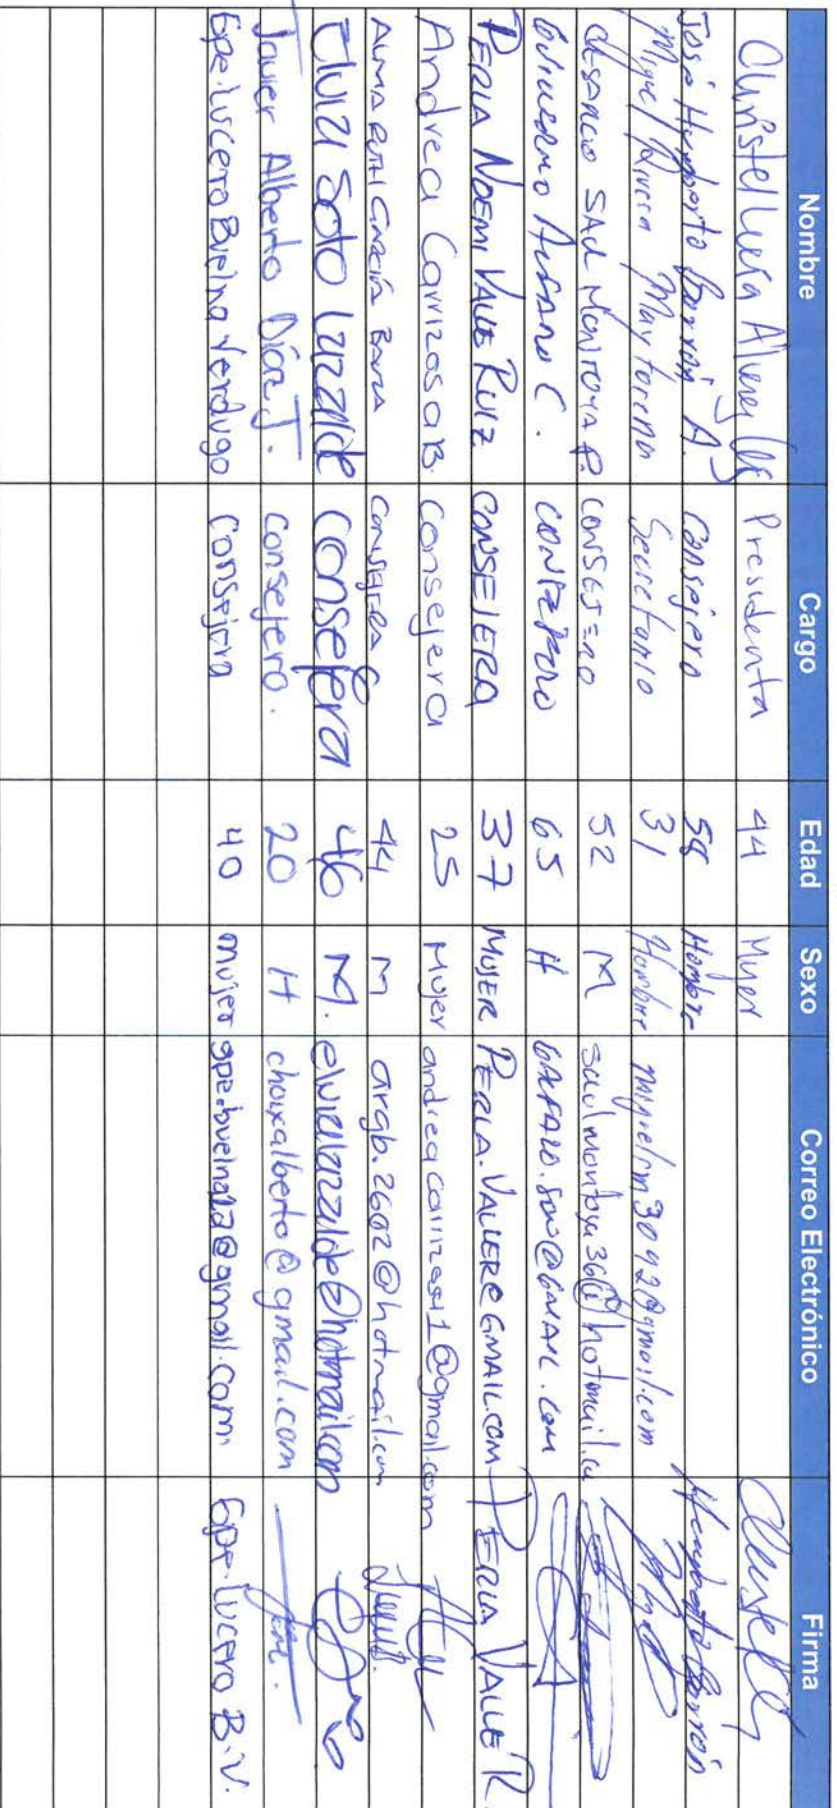 Nombre Cargo Edad Sexo Correo Electrónico Firma
Christel Lucía Presidenta 44 Mujer
José Humberto Barrón A. Consejero 58 Hombre Humberto Barrón
Miguel Rivera Maytorena Secretario 31 Hombre miguelrm3092@gmail.com
SAUL MONTOYA P. CONSEJERO 52 M saulmontoya36@hotmail.co
C. 65 H
PERLA NOEMI VALLE RUIZ CONSEJERA 37 MUJER PERLA.VALLER@GMAIL.COM PERLA VALLE R.
Andrea Carrizosa B. Consejera 25 Mujer
ALMA RUTH GARCÍA BARZA CONSEJERA 44 M argb.2602@hotmail.com
Elvira Soto Lazzalde Consejera 46 M. elviralazzalde@hotmail.com
Javier Alberto Díaz J. Consejero. 20 H choixalberto@gmail.com
Gpe. Lucero Buelna Verdugo Consejera 40 mujer gpe.buelna12@gmail.com. Gpe. Lucero B.V.